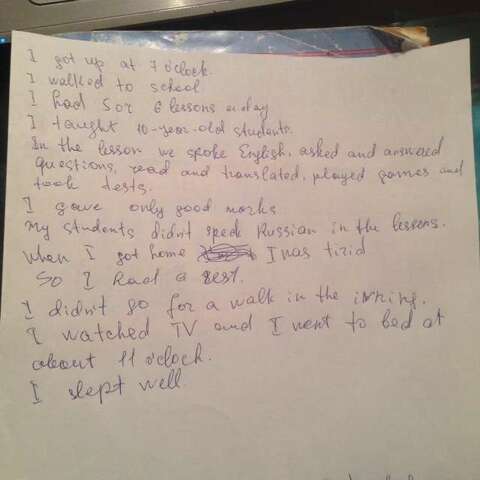 I got up at 7 o'clock.
I walked to school.
I had 5 or 6 lessons a day
I taught 10-year-old students.
In the lesson we spoke English, asked and answered
questions, read and translated, played games and
took tests.
I gave only good marks
My students didn't speek Russian in the lessons.
When I got home I was tirid
So I had a rest.
I didn't go for a walk in the
I watched TV and I went to bed at
about 11 o'clock.
I slept well.